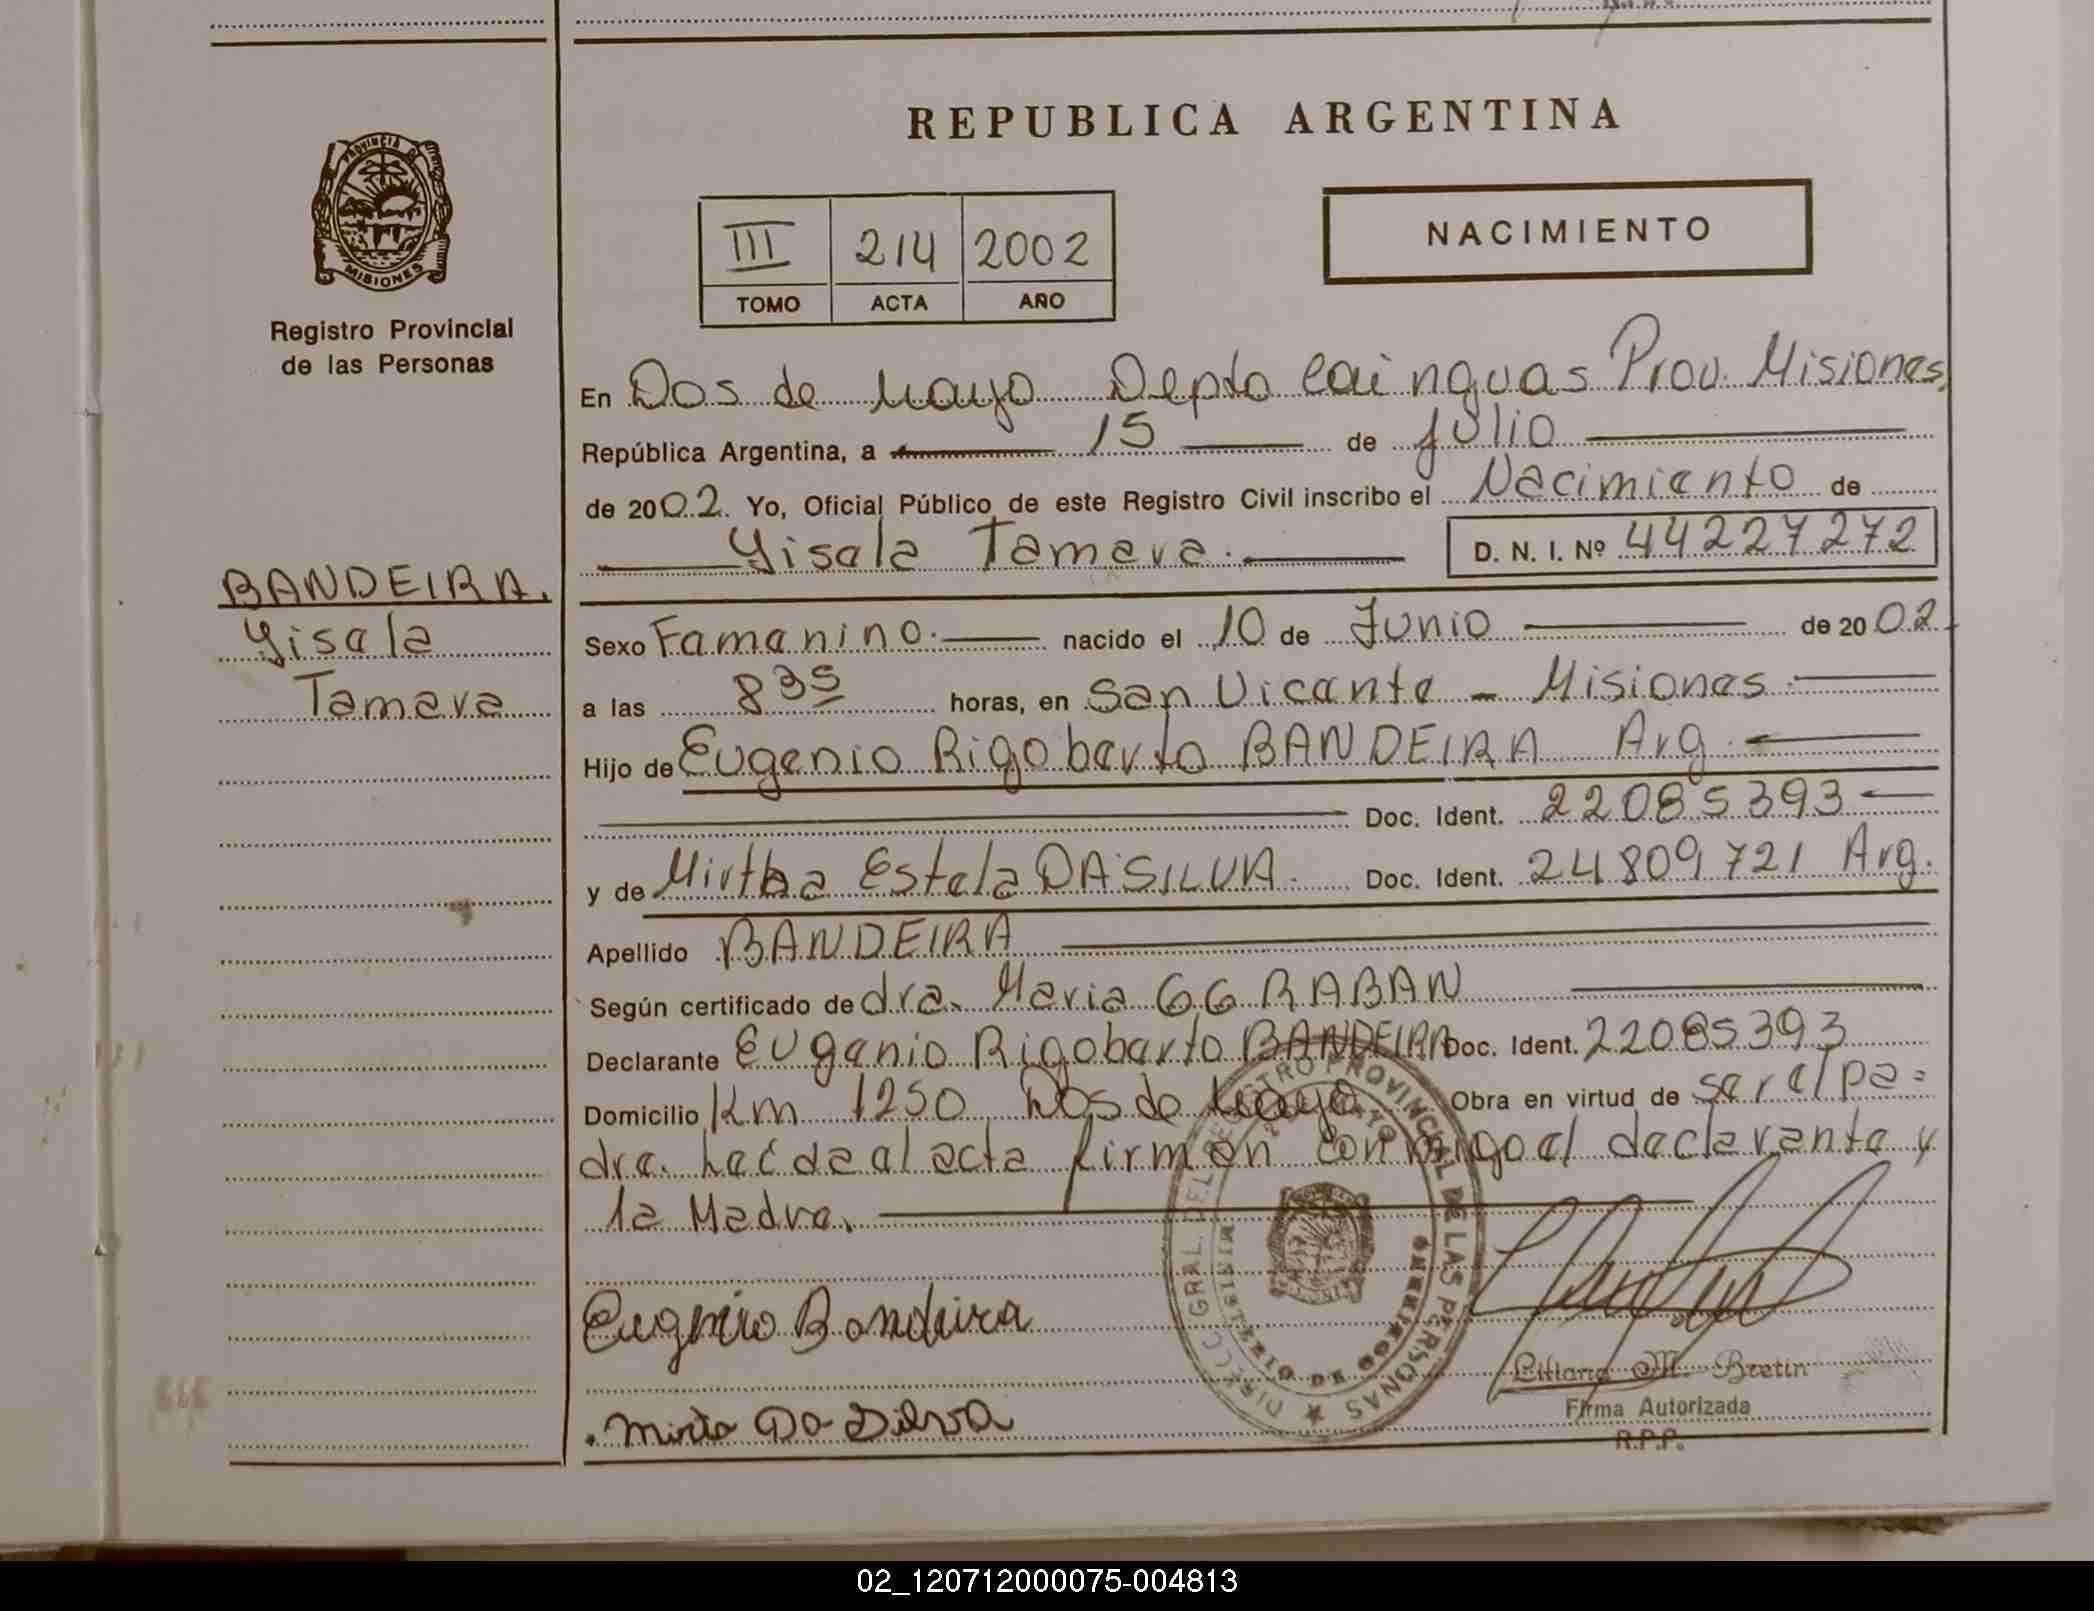 REPUBLICA ARGENTINA
PROVINCIA DE
MISIONES
Registro Provincial
de las Personas
III 214 2002
TOMO ACTA AÑO
NACIMIENTO
En Dos de Mayo Depto Cainguas Prov. Misiones,
República Argentina, a 15 de Julio
de 2002. Yo, Oficial Público de este Registro Civil inscribo el Nacimiento de
Yisela Tamara. D. N. I. Nº 44227272
BANDEIRA.
Yisela
Tamara
Sexo Femenino. nacido el 10 de Junio de 2002
a las 8 35 horas, en San Vicente - Misiones
Hijo de Eugenio Rigoberto BANDEIRA Arg.
Doc. Ident. 22085393
y de Mirtha Estela DA SILVA. Doc. Ident. 24809721 Arg.
Apellido BANDEIRA
Según certificado de dra. Maria G G RABAN
Declarante Eugenio Rigoberto BANDEIRA Doc. Ident. 22085393
Domicilio Km 1250 Dos de Mayo Obra en virtud de ser el pa=
dre. Leída el acta firman conmigo el declarante y
la Madre.
DIRECC. GRAL. DEL REGISTRO PROVINCIAL DE LAS PERSONAS
MINISTERIO DE GOBIERNO
Eugenio Bandeira
Mirta Da Silva
Liliana M. Bretin
Firma Autorizada
R.P.P.
02_120712000075-004813